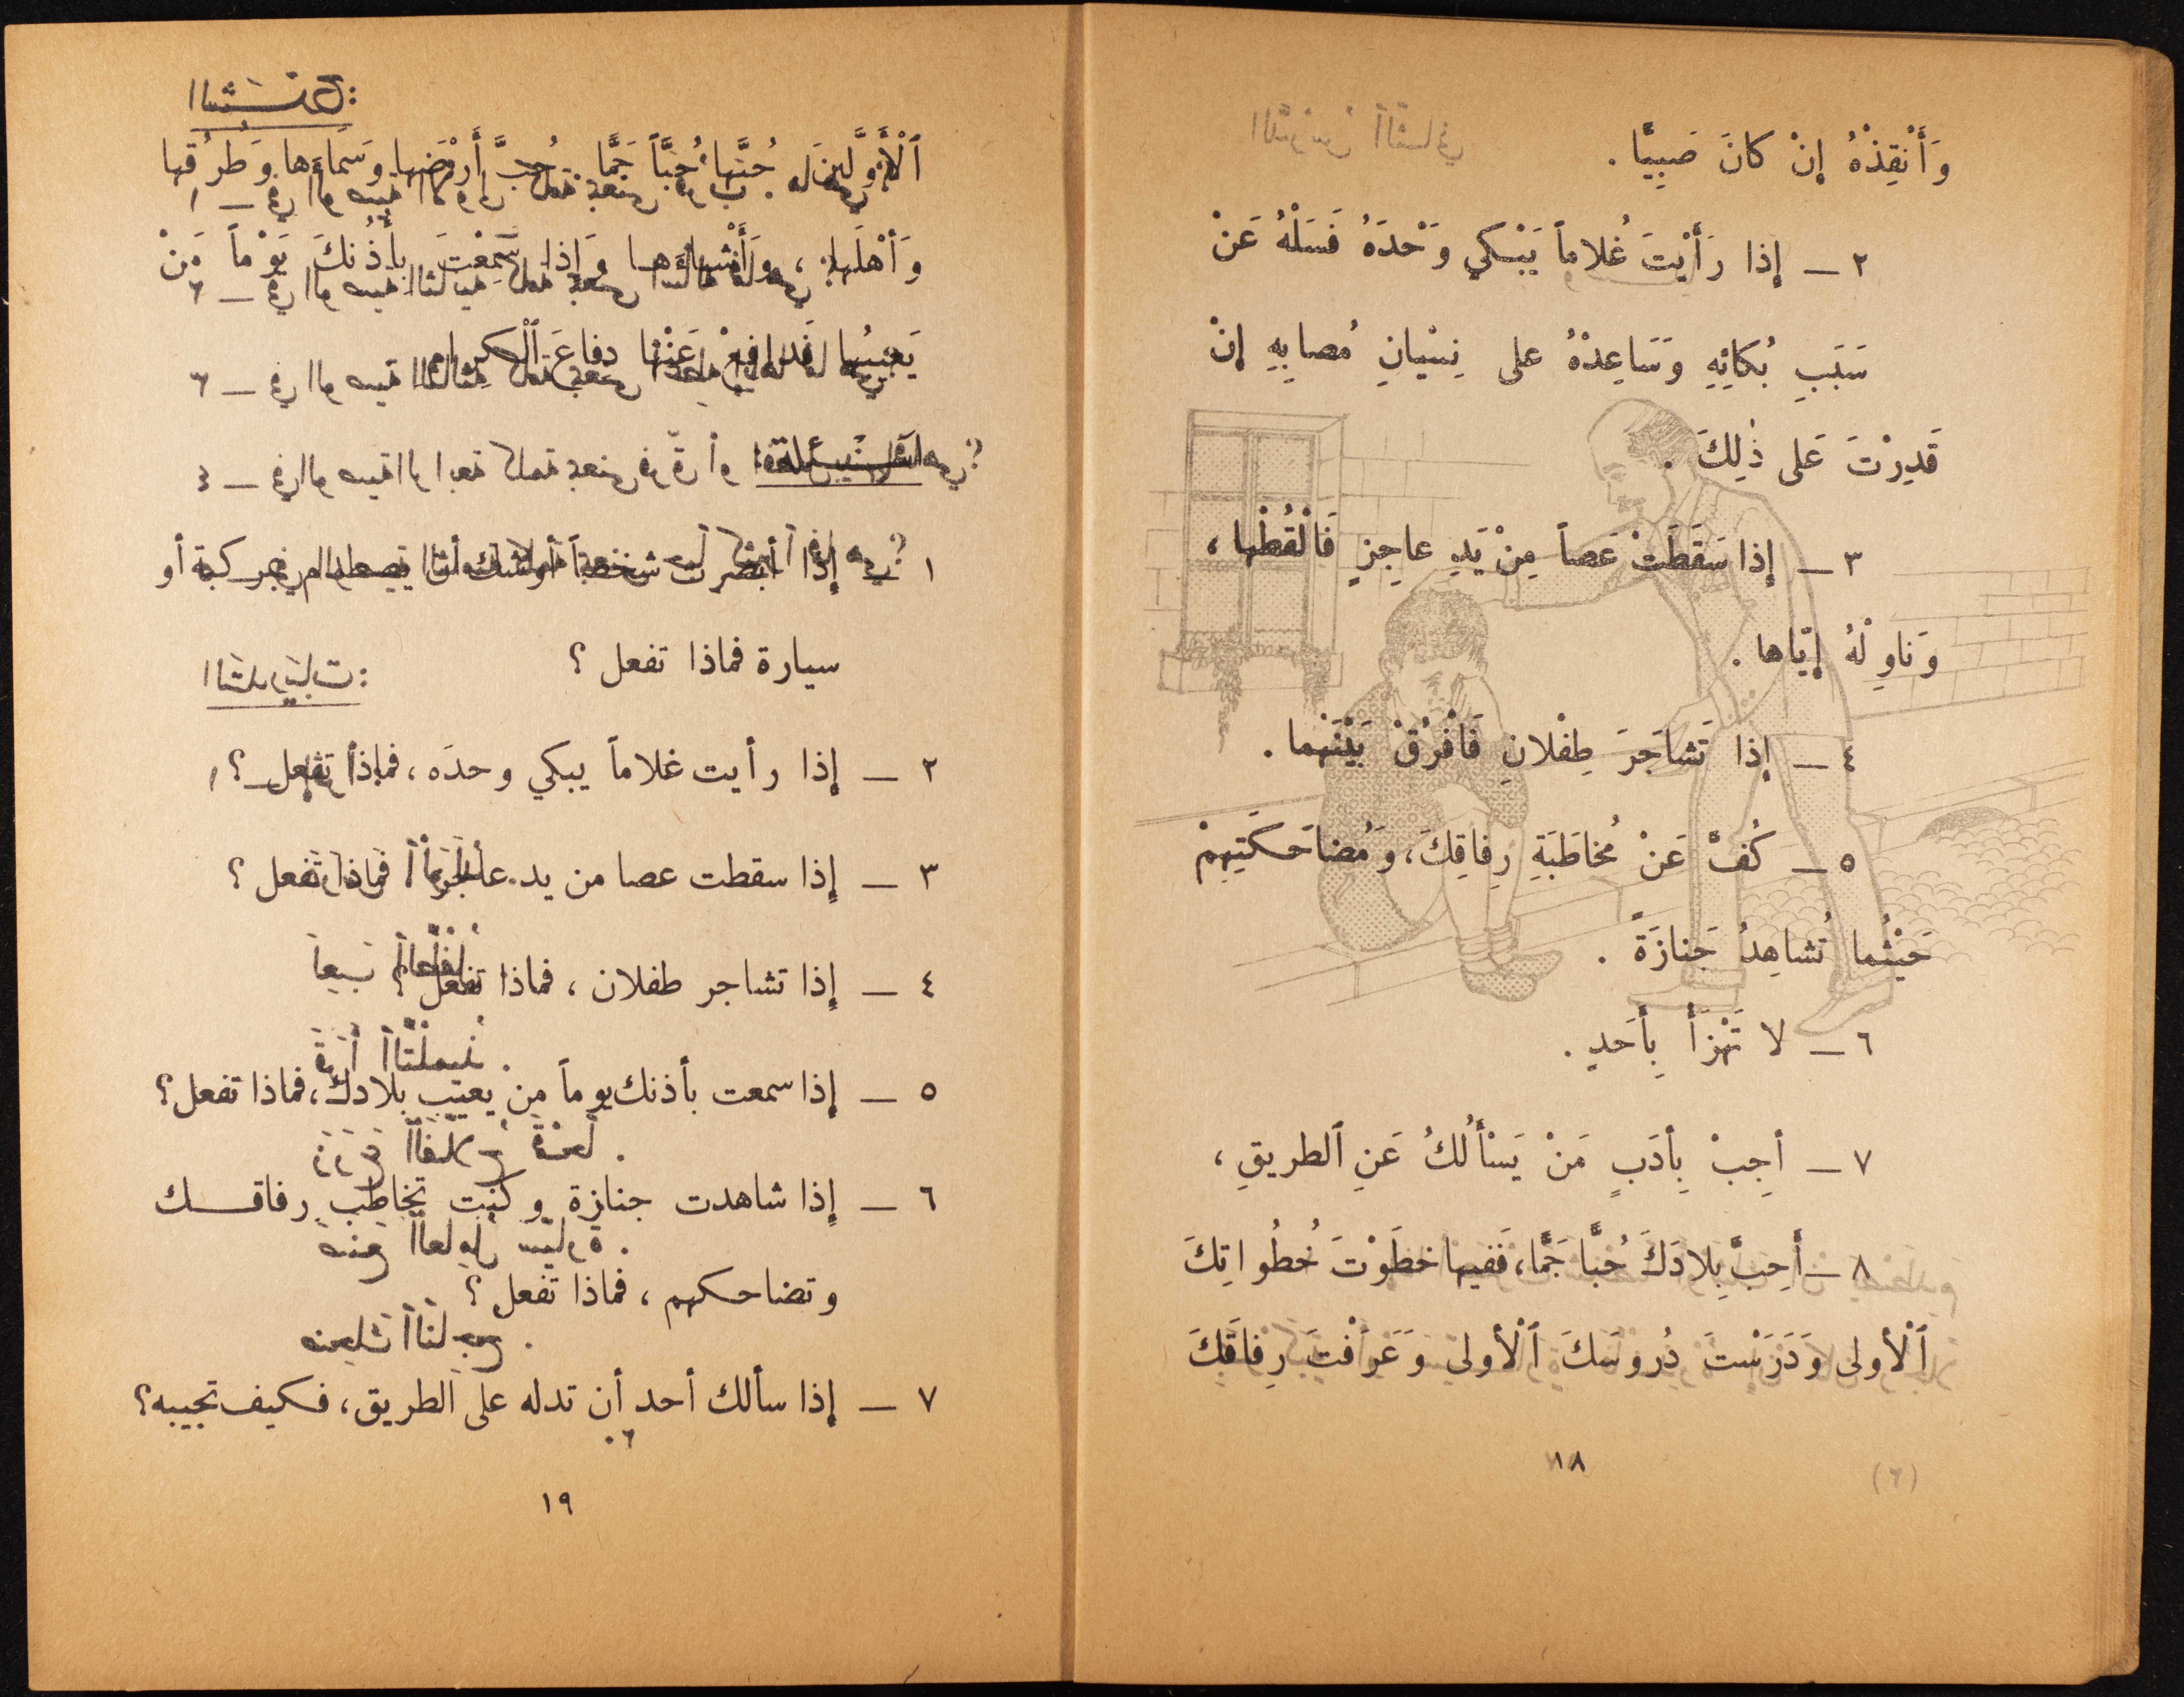 وَأَنْقِذْهُ إِنْ كانَ صَبِيًّا .
٢ ـ إِذا رَأَيْتَ غُلاماً يَبْكي وَحْدَهُ فَسَلْهُ عَنْ
سَبَبِ بُكائِهِ وَسَاعِدْهُ على نِسْيانِ مُصابِهِ إِنْ
قَدِرْتَ عَلى ذٰلِكَ .
٣ ـ إِذا سَقَطَتْ عَصاً مِنْ يَدِ عاجِزٍ فَالْقُطْها ،
وَناوِلْهُ إِيّاها .
٤ ـ إِذا تَشاجَرَ طِفْلانِ فَافْرُقْ بَيْنَهُما .
٥ ـ كُفَّ عَنْ مُخاطَبَةِ رِفاقِكَ، وَمُضاحَكَتِهِمْ
حَيْثُما تُشاهِدُ جَنازَةً .
٦ ـ لا تَهْزَأْ بِأَحَدٍ .
٧ ـ أَجِبْ بِأَدَبٍ مَنْ يَسْأَلُكَ عَنِ ٱلطريقِ ،
٨ ـ أَحِبَّ بِلادَكَ حُبًّا جَمًّا، فَفيها خطَوْتَ خُطُواتِكَ
ٱلْأولى وَدَرَسْتَ دُروسَكَ ٱلْأولى وَعَرَفْتَ رِفاقَكَ
١٨
ٱلْأَوَّلينَ . حُبَّها حُبّاً جَمًّا . حُبَّ أَرْضَها وَسَماءَها وَطُرُقَها
وَأَهْلَها ، وَأَشْياءَها وَإِذا سَمِعْتَ بِأُذُنِكَ يَوْماً مَنْ
يَعيبُها فَدافِعْ عَنْها دِفاعَ ٱلْكِرامِ
١ إذا أبصرت شخصاً أوشك أن يصطدم بمركبة أو
سيارة فماذا تفعل ؟
٢ ـ إذا رأيت غلاماً يبكي وحدَه ، فماذا تفعل ؟
٣ ـ إذا سقطت عصا من يد عاجز فماذا تفعل ؟
٤ ـ إذا تشاجر طفلان ، فماذا تفعل ؟
٥ ـ إذا سمعت بأذنك يوماً من يعيب بلادك، فماذا تفعل؟
٦ ـ إذا شاهدت جنازة وكنت تخاطب رفاقـك
وتضاحكهم ، فماذا تفعل ؟
٧ ـ إذا سألك أحد أن تدله على الطريق، فكيف تجيبه؟
١٩